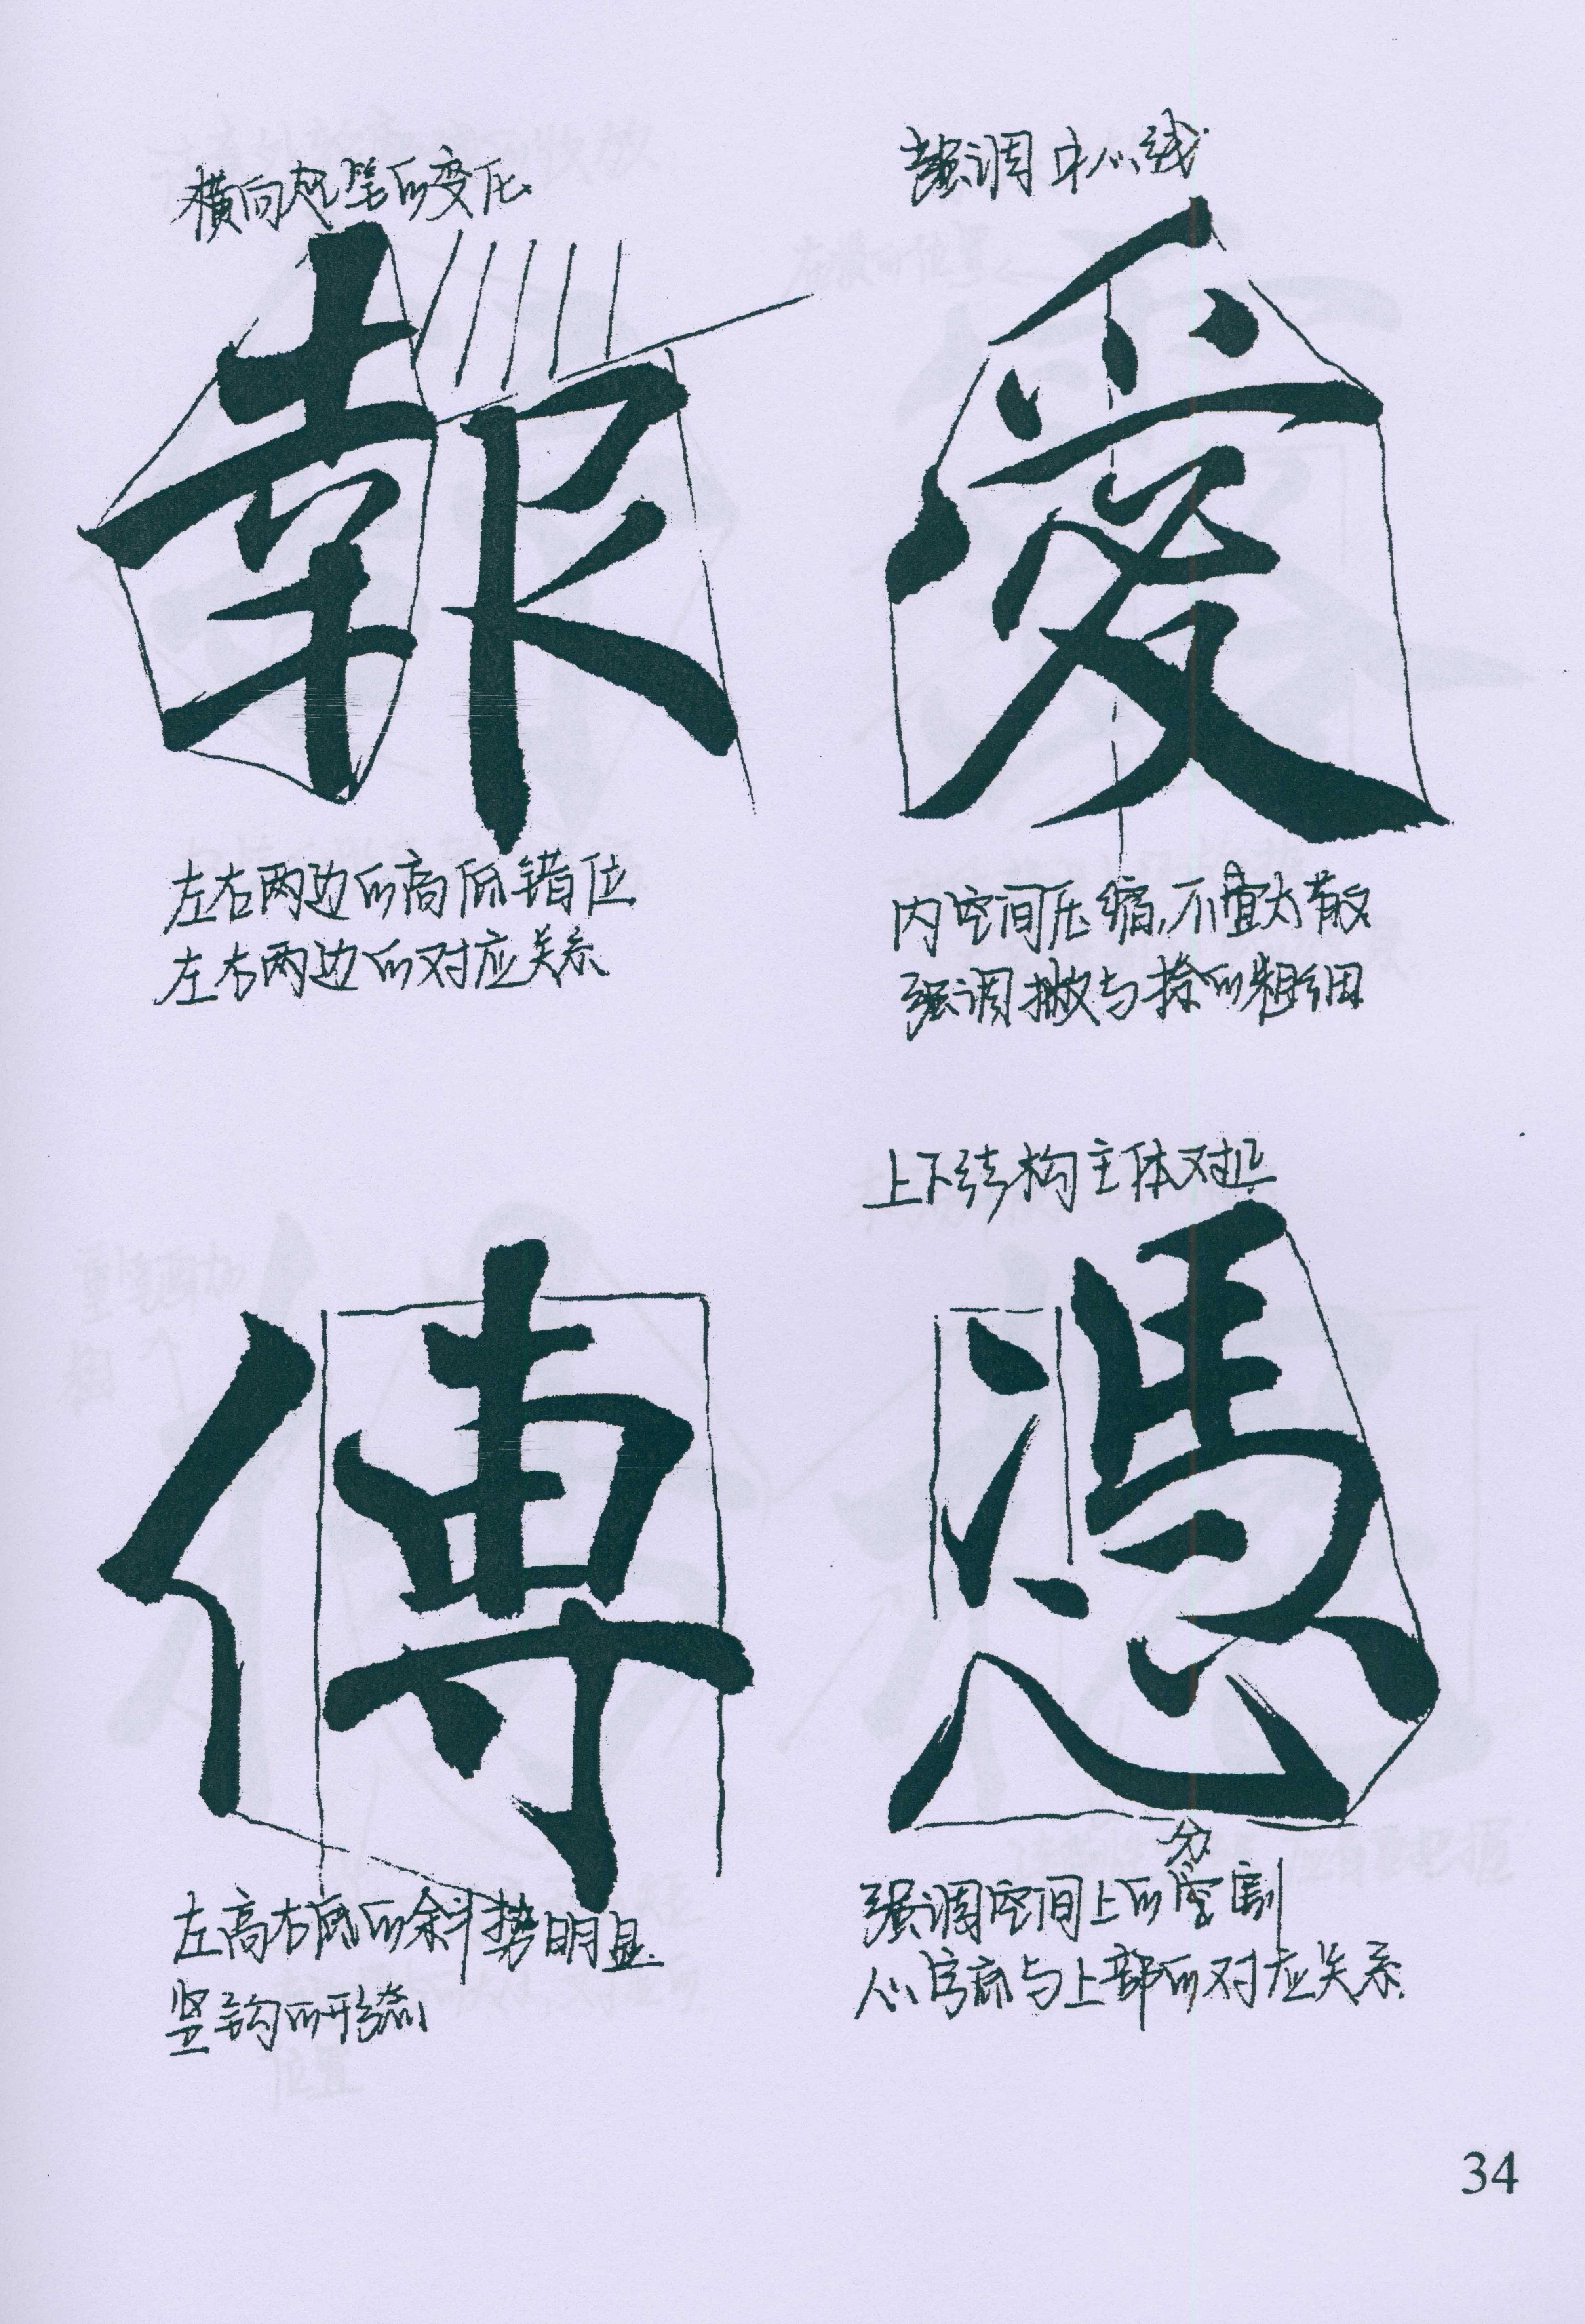 横向起笔的变化
報
左右两边的高低错位
左右两边的对应关系
强调中心线
愛
内空间压缩,不宜太散
强调撇与捺的粗细
傅
左高右底的斜势明显.
竖钩的形态
上下结构主体对正
憑
强调空间上的分割
心字底与上部的对应关系.
34